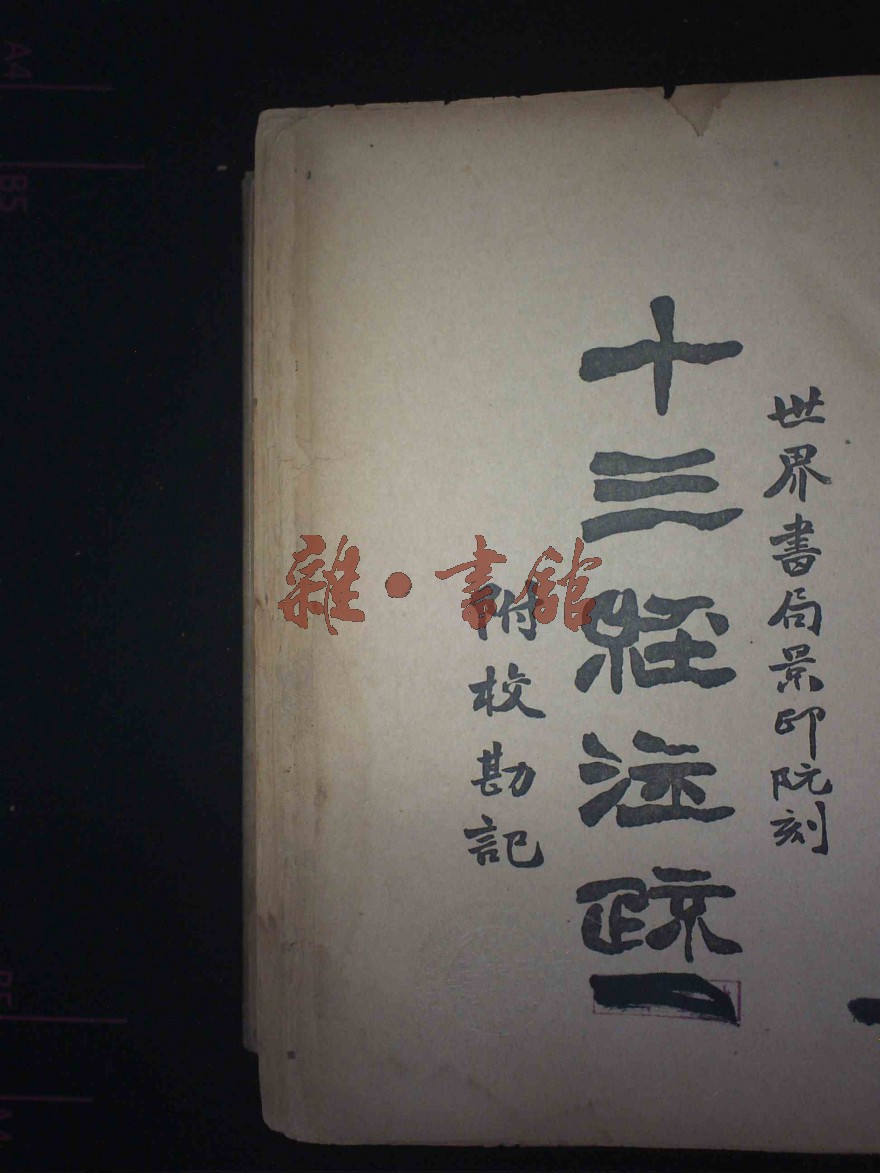 世界書局景印阮刻
十三經注疏
附校勘記
雜·書館
A4
B5